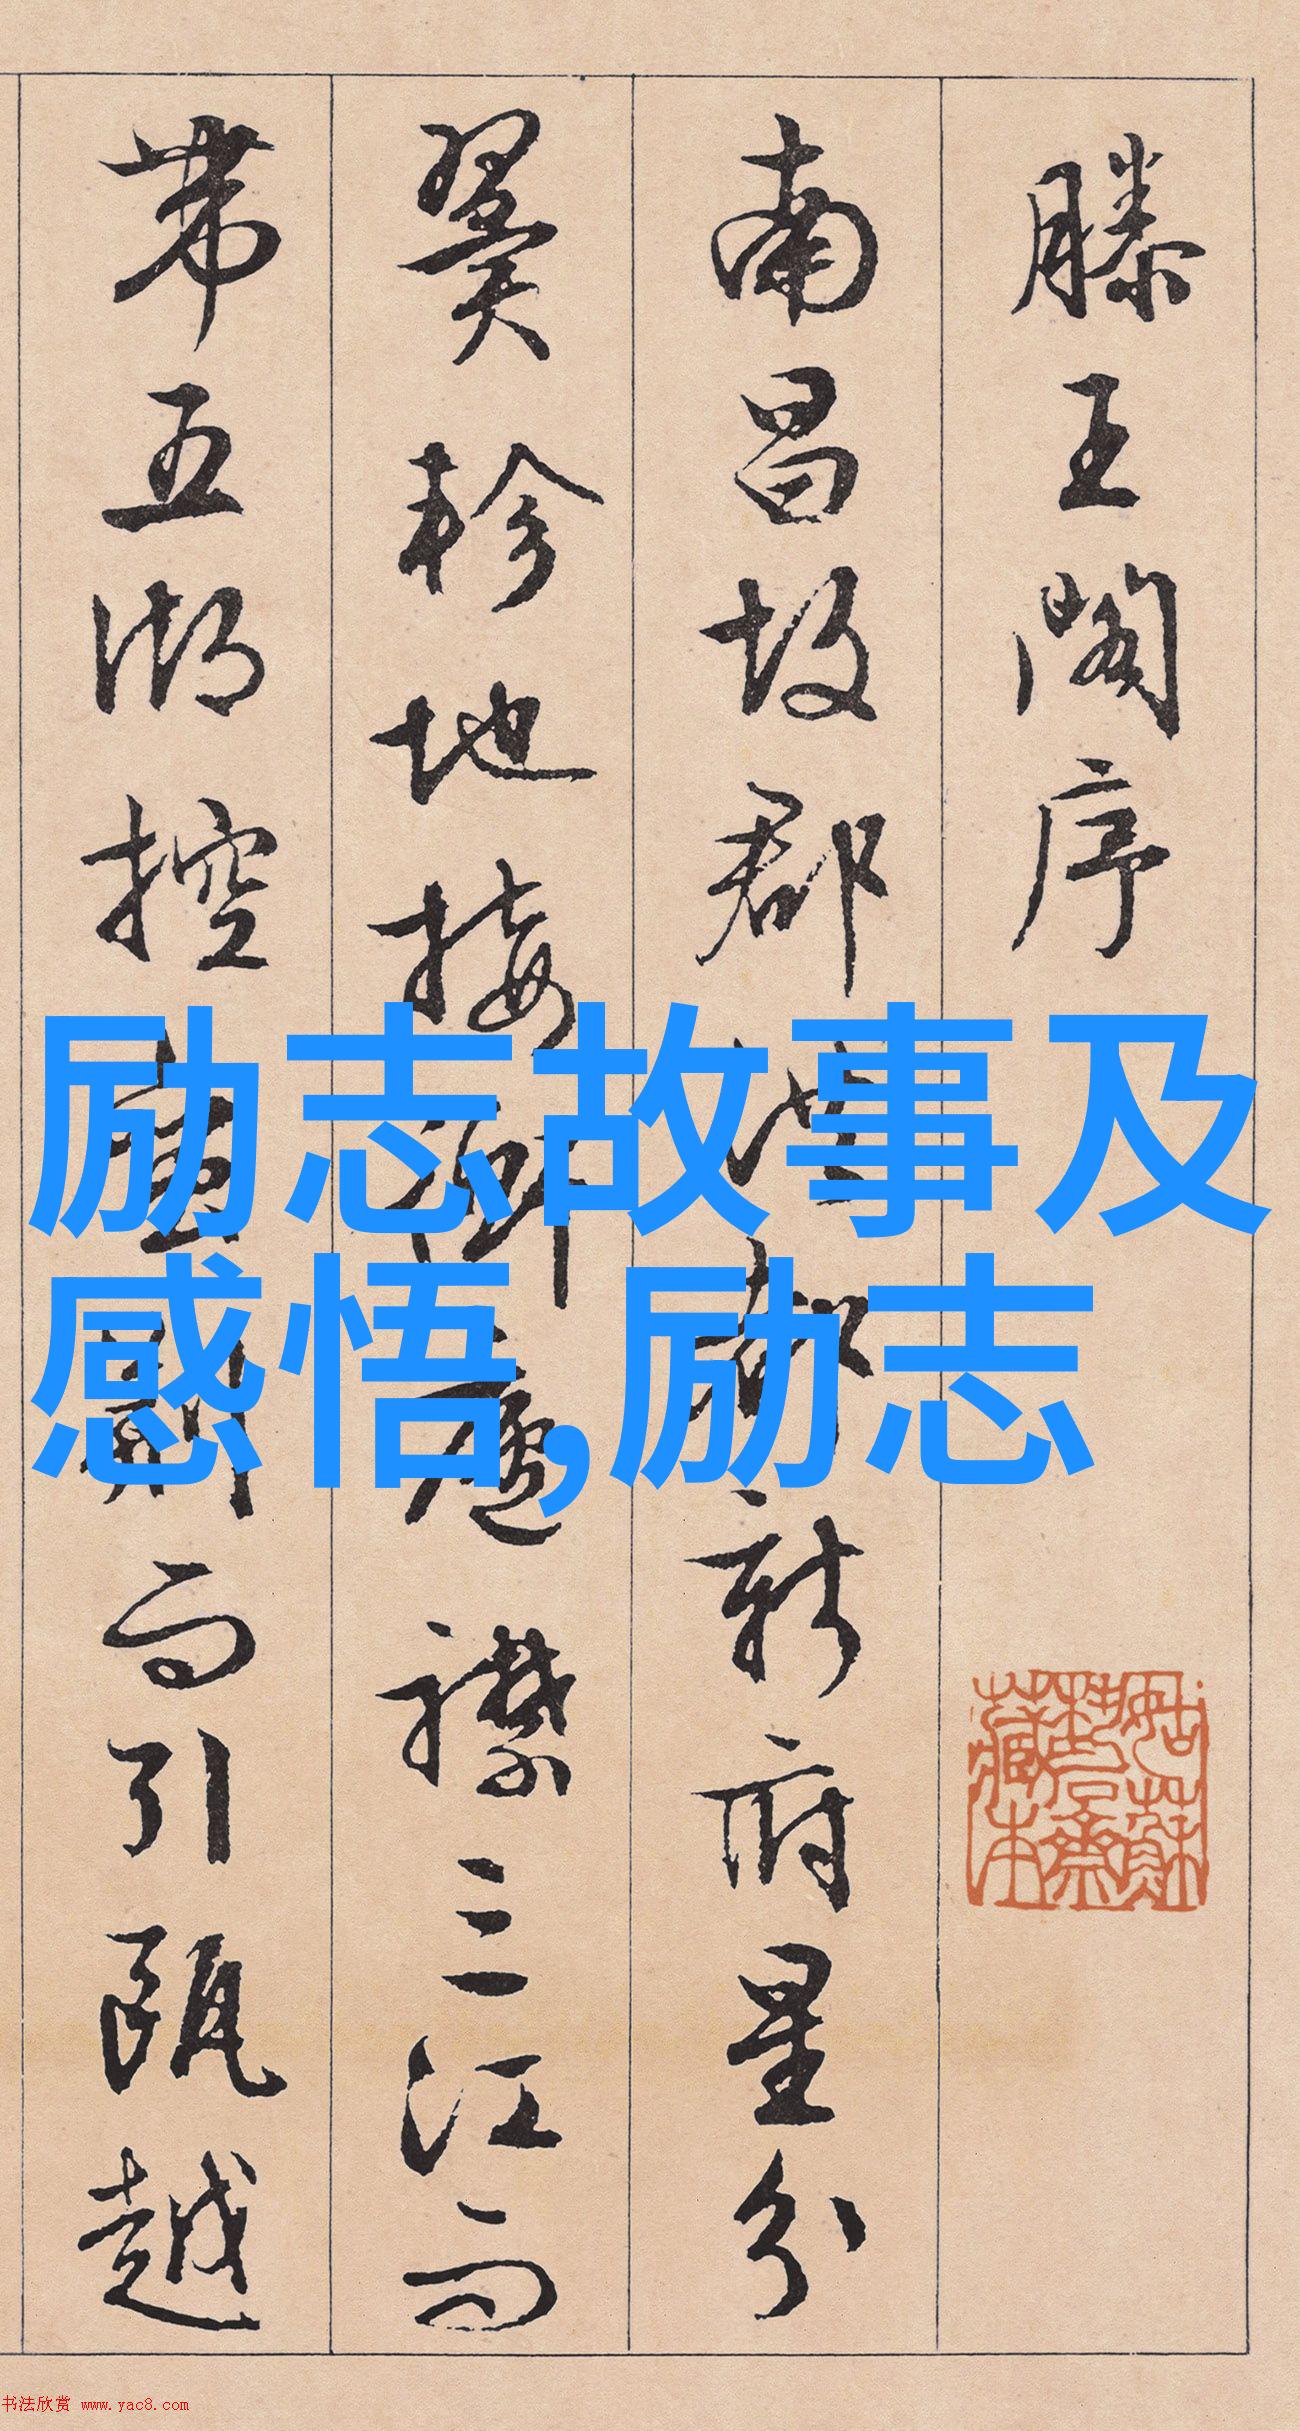 滕王阁序
南昌故郡洪都新府星分
翼轸地接衡庐襟三江而
带五湖控蛮荆而引瓯越
励志故事及
感悟,励志
姑苏
藏本
书法欣赏 www.yac8.com